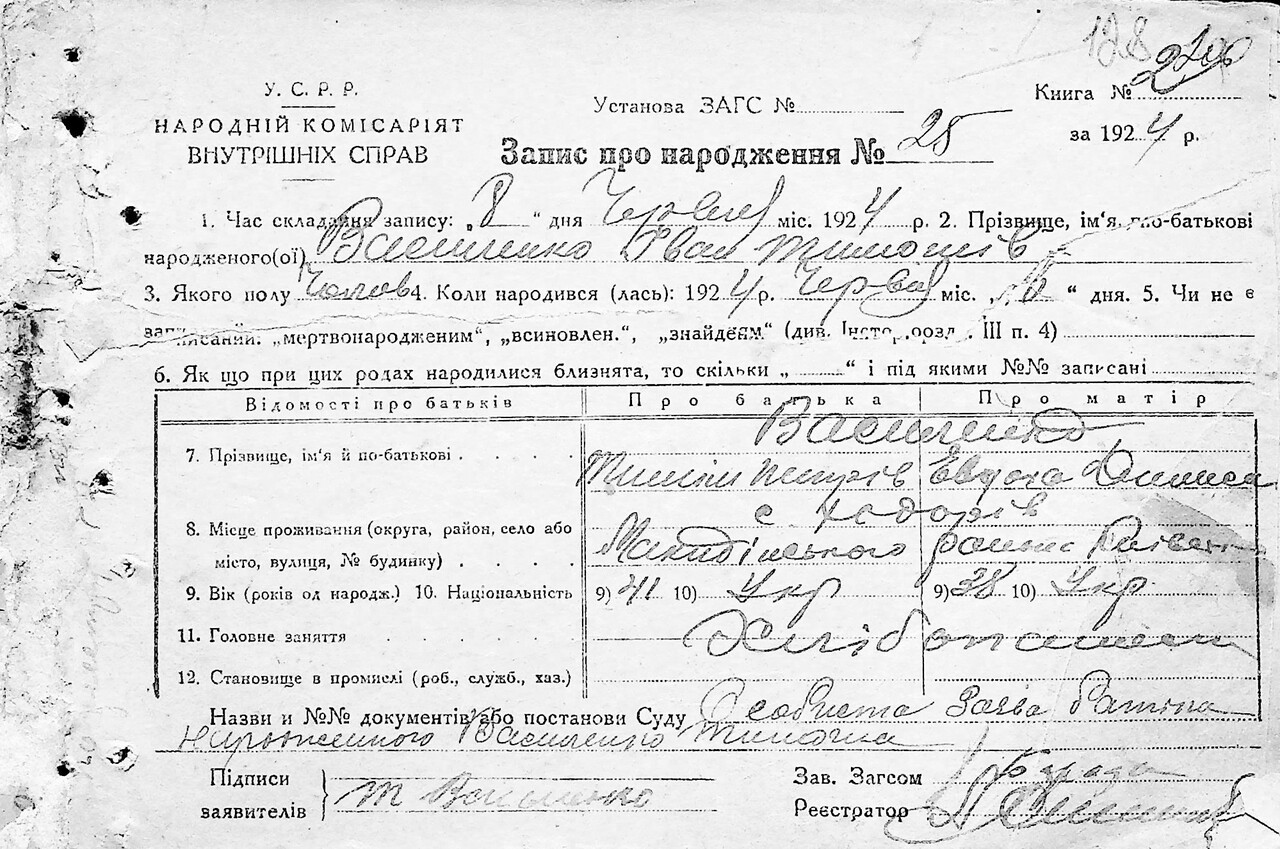 128
270
У. С. Р. Р.
НАРОДНІЙ КОМІСАРІЯТ
ВНУТРІШНІХ СПРАВ
Установа ЗАГС №
Книга №
за 1924 р.
Запис про народження № 25
1. Час складання запису: „8“ дня Червня міс. 1924 р. 2. Прізвище, ім'я, по-батькові
народженого(ої) Василенко Іван Тимошів
3. Якого полу Чолов 4. Коли народився (лась): 1924 р. Червня міс. „ “ дня. 5. Чи не є
записаний: „мертвонародженим“, „всиновлен.“, „знайдеям“ (див. Інстр. розд. III п. 4)
6. Як що при цих родах народилися близнята, то скільки „ “ і під якими №№ записані
Відомості про батьків Про батька Про матір
Василенко
7. Прізвище, ім'я й по-батькові . . . . Тиміш Петрів Евдоха Дениса
с Ходорів
8. Місце проживання (округа, район, село або
місто, вулиця, № будинку) . . . . району
9. Вік (років од народж.) 10. Національність 9) 41 10) Укр 9) 38 10) Укр
11. Головне заняття . . . . . Хлібопашець
12. Становище в промислі (роб., служб., хаз.)
Назви и №№ документів або постанови Суду Особиста Заява Батька
Народженного Василенко Тимоша
Підписи
заявителів } Т Василенко
Зав. Загсом
Реєстратор